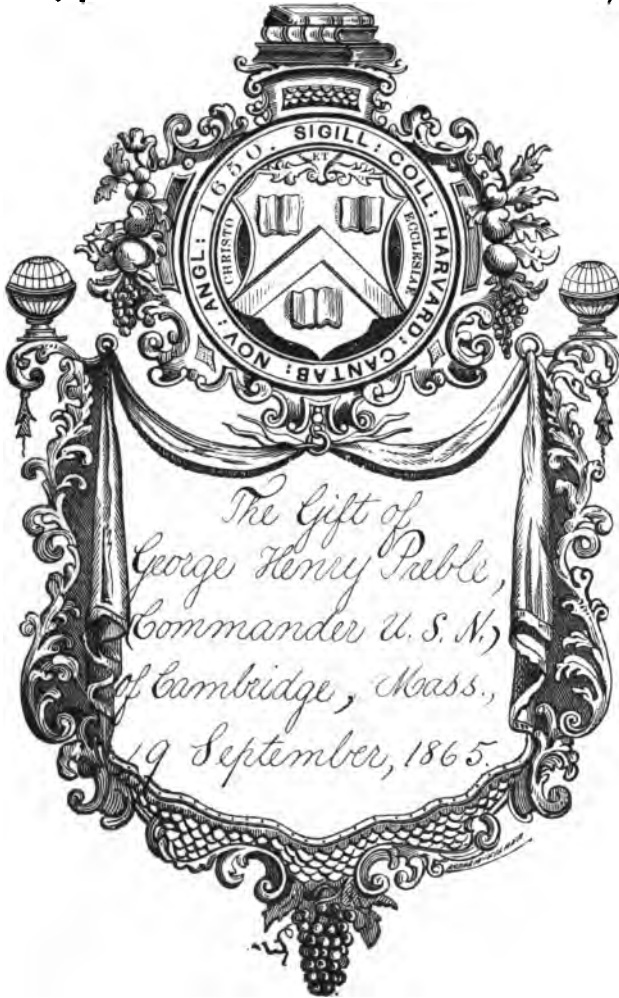 SIGILL: COLL: HARVARD: CANTAB: NOV: ANGL: 1650.
ET
CHRISTO
ECCLESIAE
The Gift of
George Henry Preble,
Commander U. S. N.,
of Cambridge, Mass.,
19 September, 1865.